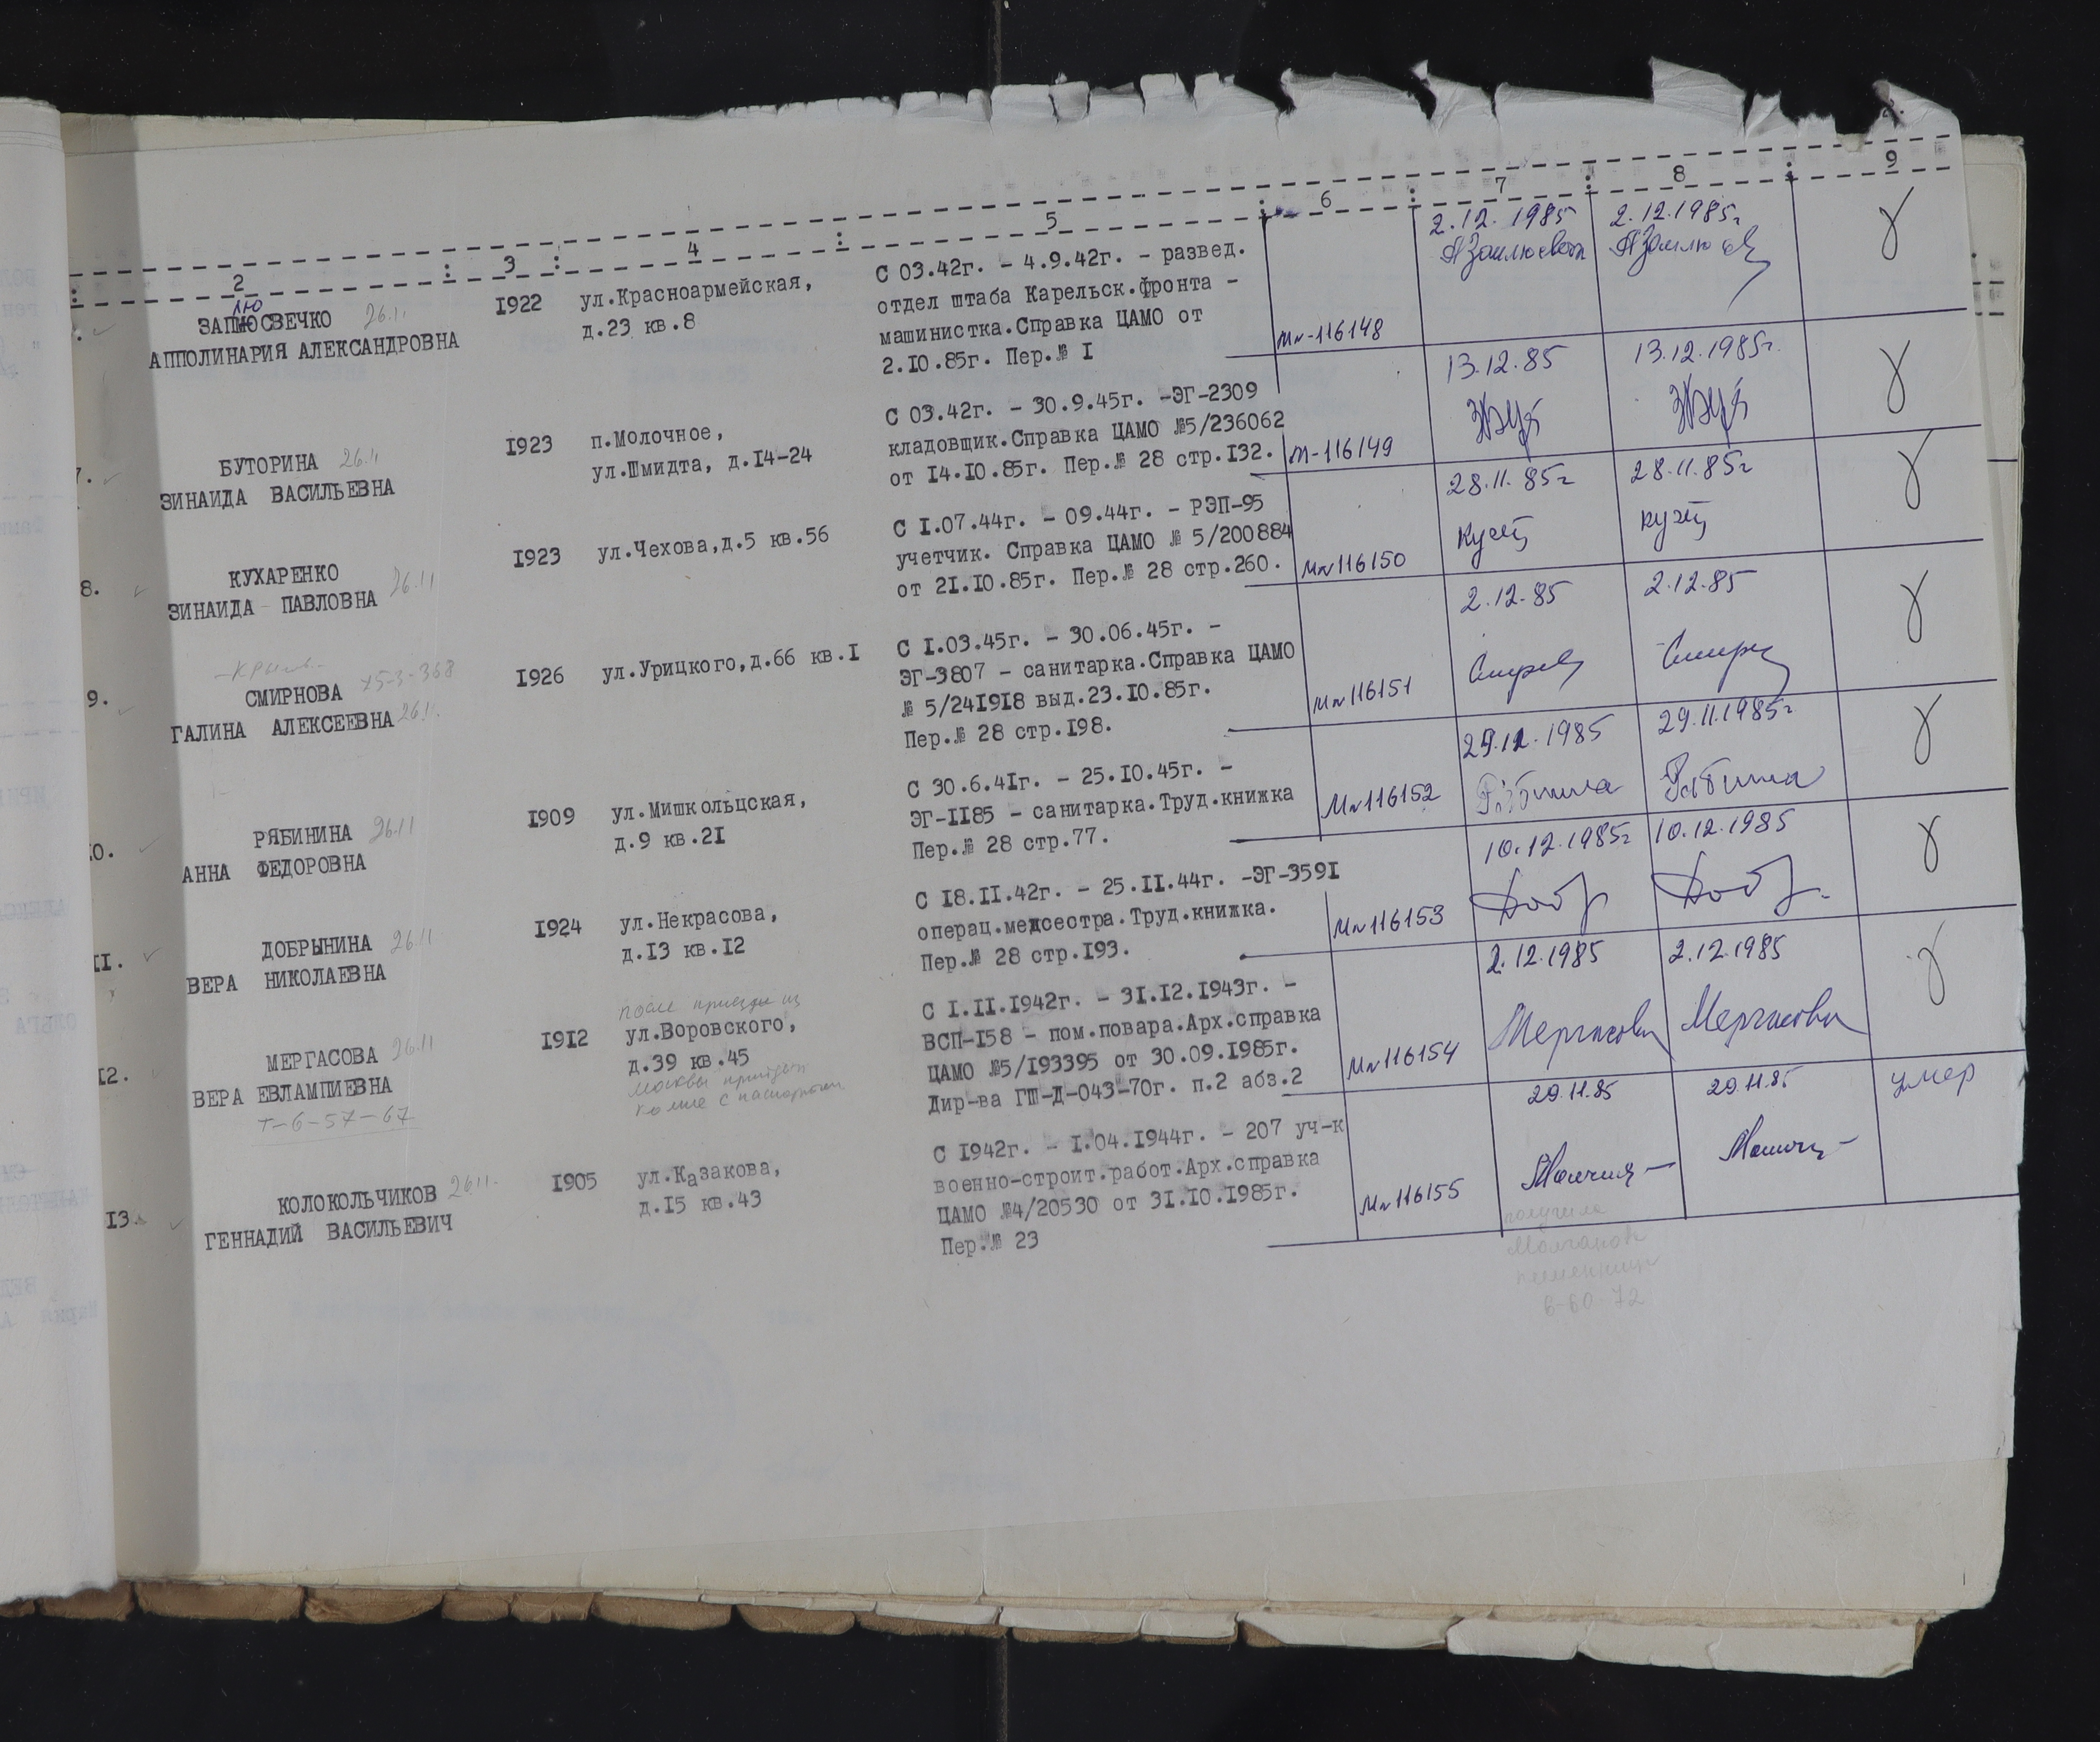 2 3 4 5 6 7 8 9
ЗАПЛЮСВЕЧКО 26.11
лю
АППОЛИНАРИЯ АЛЕКСАНДРОВНА
1922
ул.Красноармейская,
д.23 кв.8
С 03.42г. - 4.9.42г. - развед.
отдел штаба Карельск.фронта -
машинистка.Справка ЦАМО от
2.10.85г. Пер.№ 1
Мл-116148
2.12.1985
2.12.1985г
7.
БУТОРИНА 26.11
ЗИНАИДА ВАСИЛЬЕВНА
1923
п.Молочное,
ул.Шмидта, д.14-24
С 03.42г. - 30.9.45г. -ЭГ-2309
кладовщик.Справка ЦАМО №5/236062
от 14.10.85г. Пер.№ 28 стр.132.
М-116149
13.12.85
13.12.1985г.
8.
КУХАРЕНКО
ЗИНАИДА ПАВЛОВНА 26.11
1923
ул.Чехова,д.5 кв.56
С 1.07.44г. - 09.44г. - РЭП-95
учетчик. Справка ЦАМО № 5/200884
от 21.10.85г. Пер.№ 28 стр.260.
Мл 116150
28.11.85г
28.11.85г
9.
СМИРНОВА х5-3-368
ГАЛИНА АЛЕКСЕЕВНА 26.11.
1926
ул.Урицкого,д.66 кв.1
С 1.03.45г. - 30.06.45г. -
ЭГ-3807 - санитарка.Справка ЦАМО
№ 5/241918 выд.23.10.85г.
Пер.№ 28 стр.198.
Мл 116151
2.12.85
2.12.85
10.
РЯБИНИНА 26.11
АННА ФЕДОРОВНА
1909
ул.Мишкольцская,
д.9 кв.21
С 30.6.41г. - 25.10.45г. -
ЭГ-1185 - санитарка.Труд.книжка
Пер.№ 28 стр.77.
Мл 116152
29.11.1985
29.11.1985г
11.
ДОБРЫНИНА 26.11
ВЕРА НИКОЛАЕВНА
1924
ул.Некрасова,
д.13 кв.12
С 18.11.42г. - 25.11.44г. -ЭГ-3591
операц.медсестра.Труд.книжка.
Пер.№ 28 стр.193.
Мл 116153
10.12.1985г
10.12.1985
12.
МЕРГАСОВА 26.11
ВЕРА ЕВЛАМПИЕВНА
т-6-57-67
1912
после приезда из
ул.Воровского,
д.39 кв.45
Москвы придет
ко мне с паспортом
С 1.11.1942г. - 31.12.1943г. -
ВСП-158 - пом.повара.Арх.справка
ЦАМО №5/193395 от 30.09.1985г.
Дир-ва ГШ-Д-043-70г. п.2 абз.2
Мл 116154
2.12.1985
Мергасова
2.12.1985
Мергасова
13.
КОЛОКОЛЬЧИКОВ 26.11.
ГЕННАДИЙ ВАСИЛЬЕВИЧ
1905
ул.Казакова,
д.15 кв.43
С 1942г. - 1.04.1944г. - 207 уч-к
военно-строит.работ.Арх.справка
ЦАМО №4/20530 от 31.10.1985г.
Пер.№ 23
Мл 116155
29.11.85
29.11.85
умер
получила
6-60-72